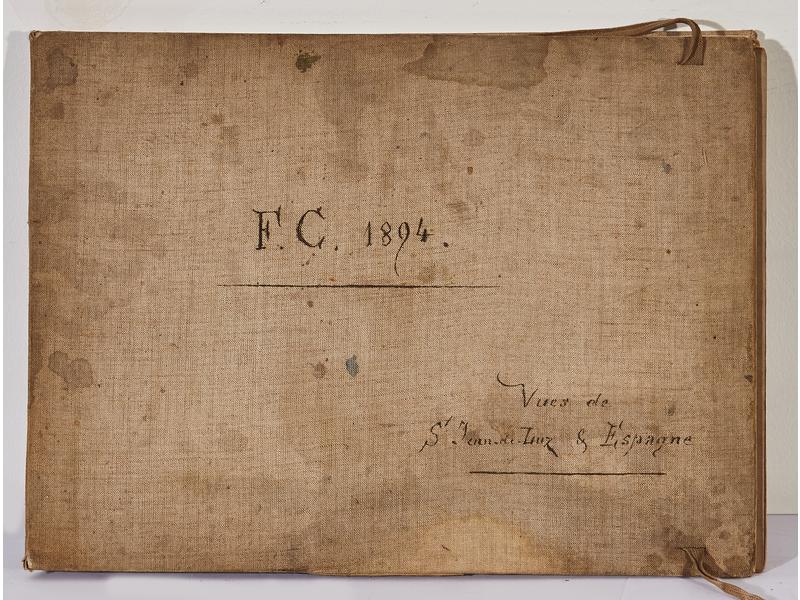 F. C. 1894.
Vues de
St Jean-de-Luz & Espagne